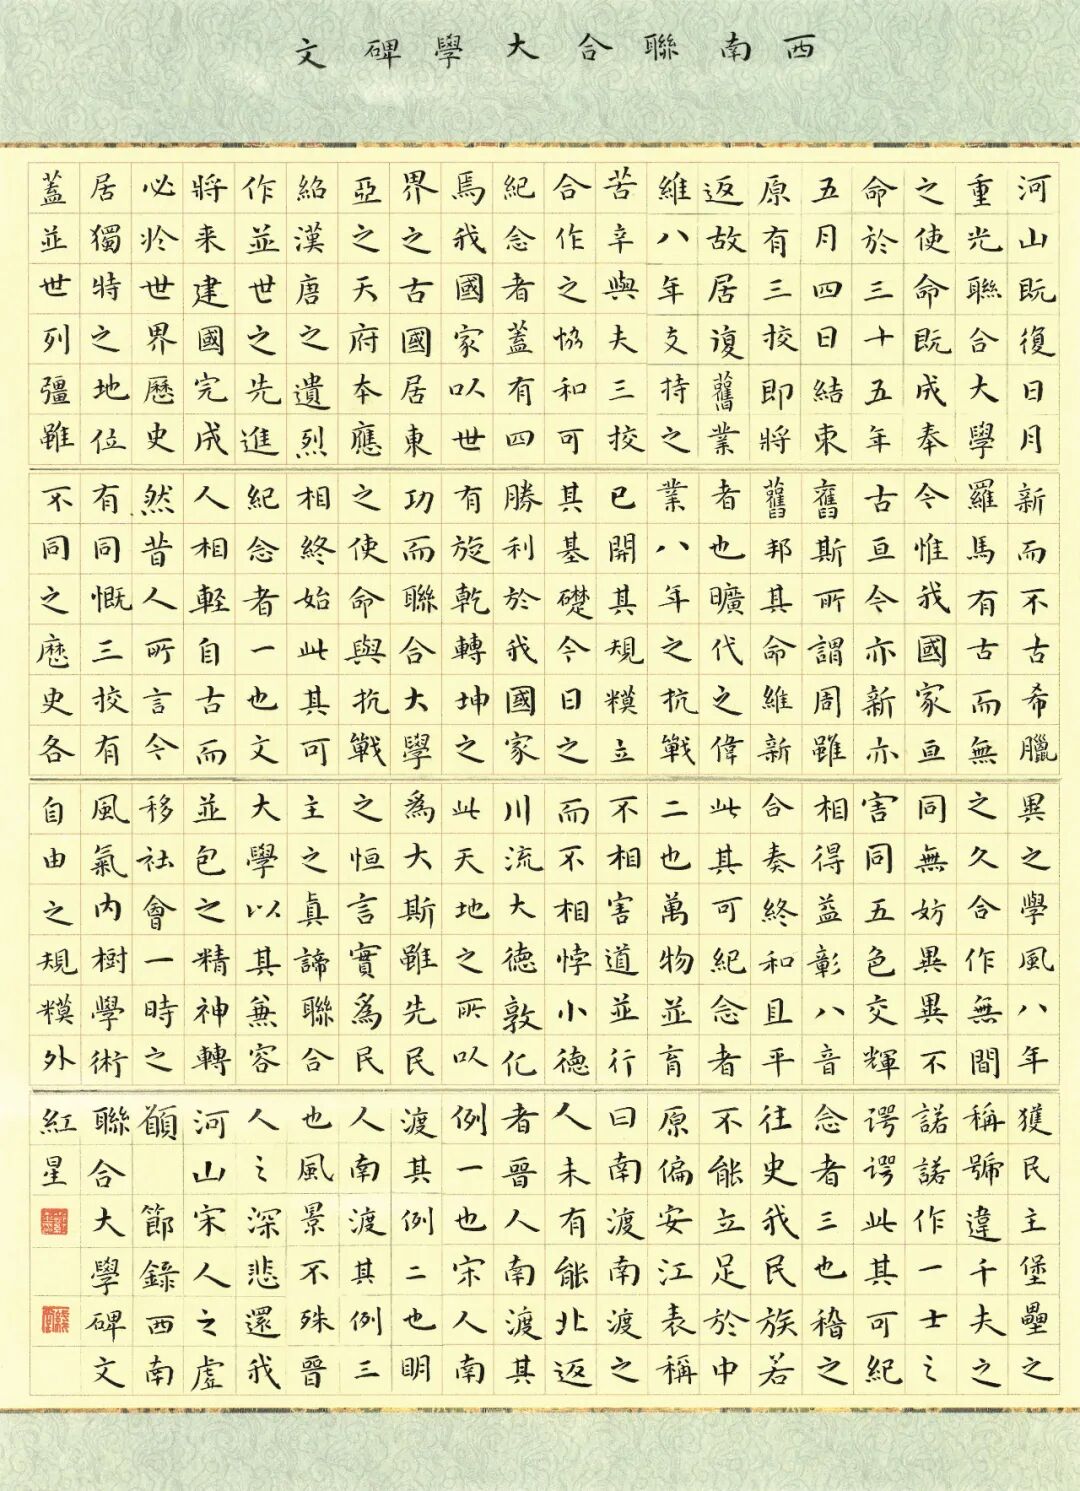 西南聯合大學碑文
河山既復日月
重光聯合大學
之使命既成奉
命於三十五年
五月四日結束
原有三校即將
返故居復舊業
維八年支持之
苦辛與夫三校
合作之協和可
紀念者蓋有四
焉我國家以世
界之古國居東
亞之天府本應
紹漢唐之遺烈
作並世之先進
將来建國完成
必於世界歷史
居獨特之地位
蓋並世列彊雖
新而不古希臘
羅馬有古而無
今惟我國家亘
古亘今亦新亦
舊斯所謂周雖
舊邦其命維新
者也曠代之偉
業八年之抗戰
已開其規糢立
其基礎今日之
勝利於我國家
有旋乾轉坤之
功而聯合大學
之使命與抗戰
相終始此其可
紀念者一也文
人相輕自古而
然昔人所言今
有同慨三校有
不同之歷史各
異之學風八年
之久合作無間
同無妨異異不
害同五色交輝
相得益彰八音
合奏終和且平
此其可紀念者
二也萬物並育
不相害道並行
而不相悖小德
川流大德敦化
此天地之所以
為大斯雖先民
之恒言實為民
主之真諦聯合
大學以其兼容
並包之精神轉
移社會一時之
風氣內樹學術
自由之規糢外
獲民主堡壘之
稱號違千夫之
諾諾作一士之
諤諤此其可紀
念者三也稽之
往史我民族若
不能立足於中
原偏安江表稱
曰南渡南渡之
人未有能北返
者晉人南渡其
例一也宋人南
渡其例二也明
人南渡其例三
也風景不殊晉
人之深悲還我
河山宋人之虛
願 節錄西南
聯合大學碑文
紅星